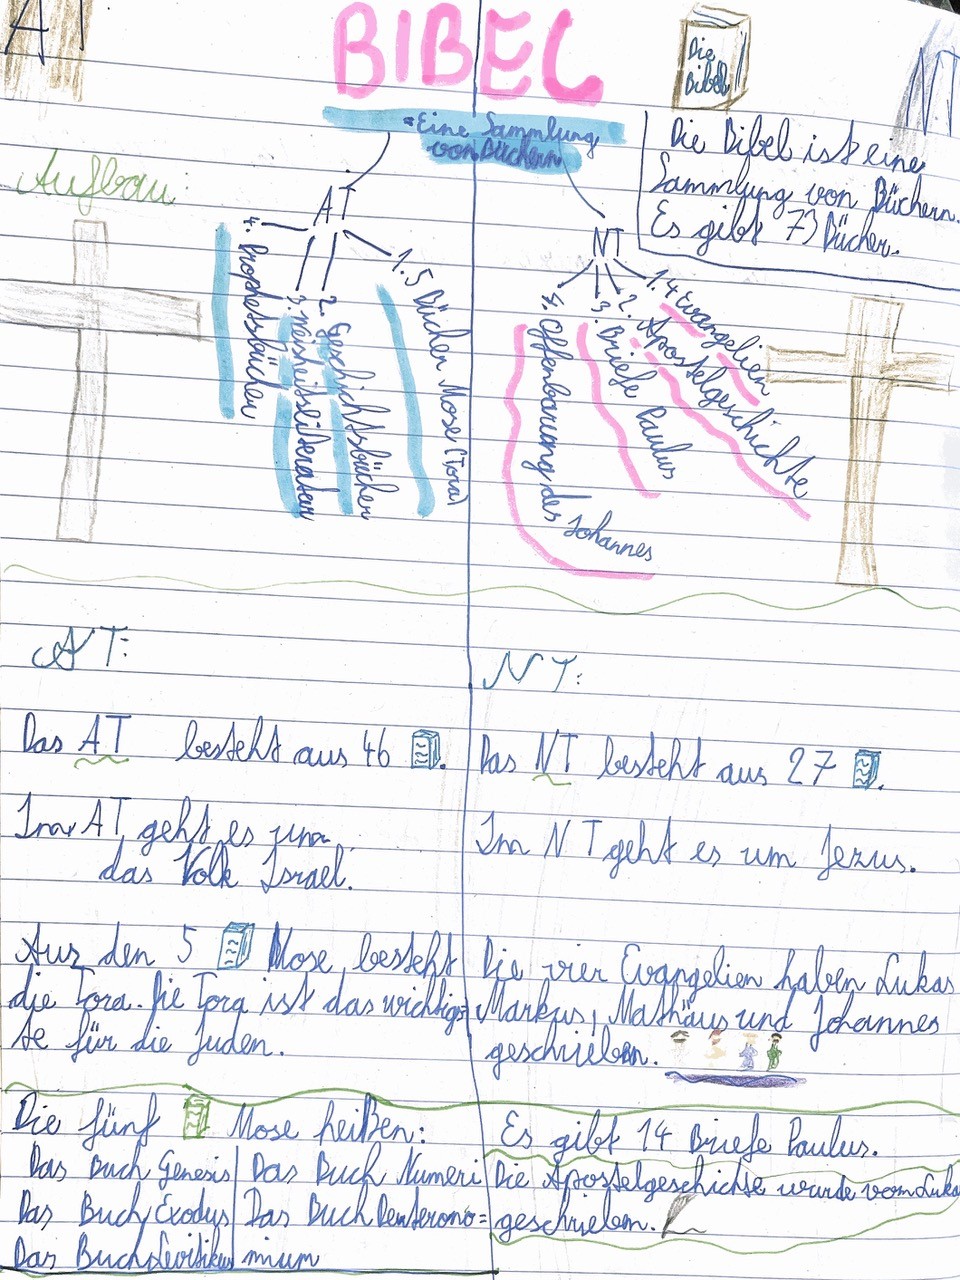 AT
BIBEL
Die
Bibel
NT
= Eine Sammlung
von Büchern
Die Bibel ist eine
Sammlung von Büchern.
Es gibt 73 Bücher.
Aufbau:
AT
1. 5 Bücher Mose (Tora)
2. Geschichtsbücher
3. Weisheitsliteratur
4. Prophetsbücher
NT
1. 4 Evangelien
2. Apostelgeschichte
3. Briefe Paulus
4. Offenbarung des Johannes
AT:
Das AT besteht aus 46 .
Im AT geht es um
das Volk Israel.
Aus den 5 Mose besteht
die Tora. Die Tora ist das wichtigs=
te für die Juden.
Die fünf Mose heißen:
Das Buch Genesis
Das Buch Exodus
Das Buch Levitikus
Das Buch Numeri
Das Buch Deuterono=
mium
NT:
Das NT besteht aus 27 .
Im NT geht es um Jezus.
Die vier Evangelien haben Lukas
Markus, Mathäus und Johannes
geschrieben.
Es gibt 14 Briefe Paulus.
Die Apostelgeschichte wurde vom Lukas
geschrieben.